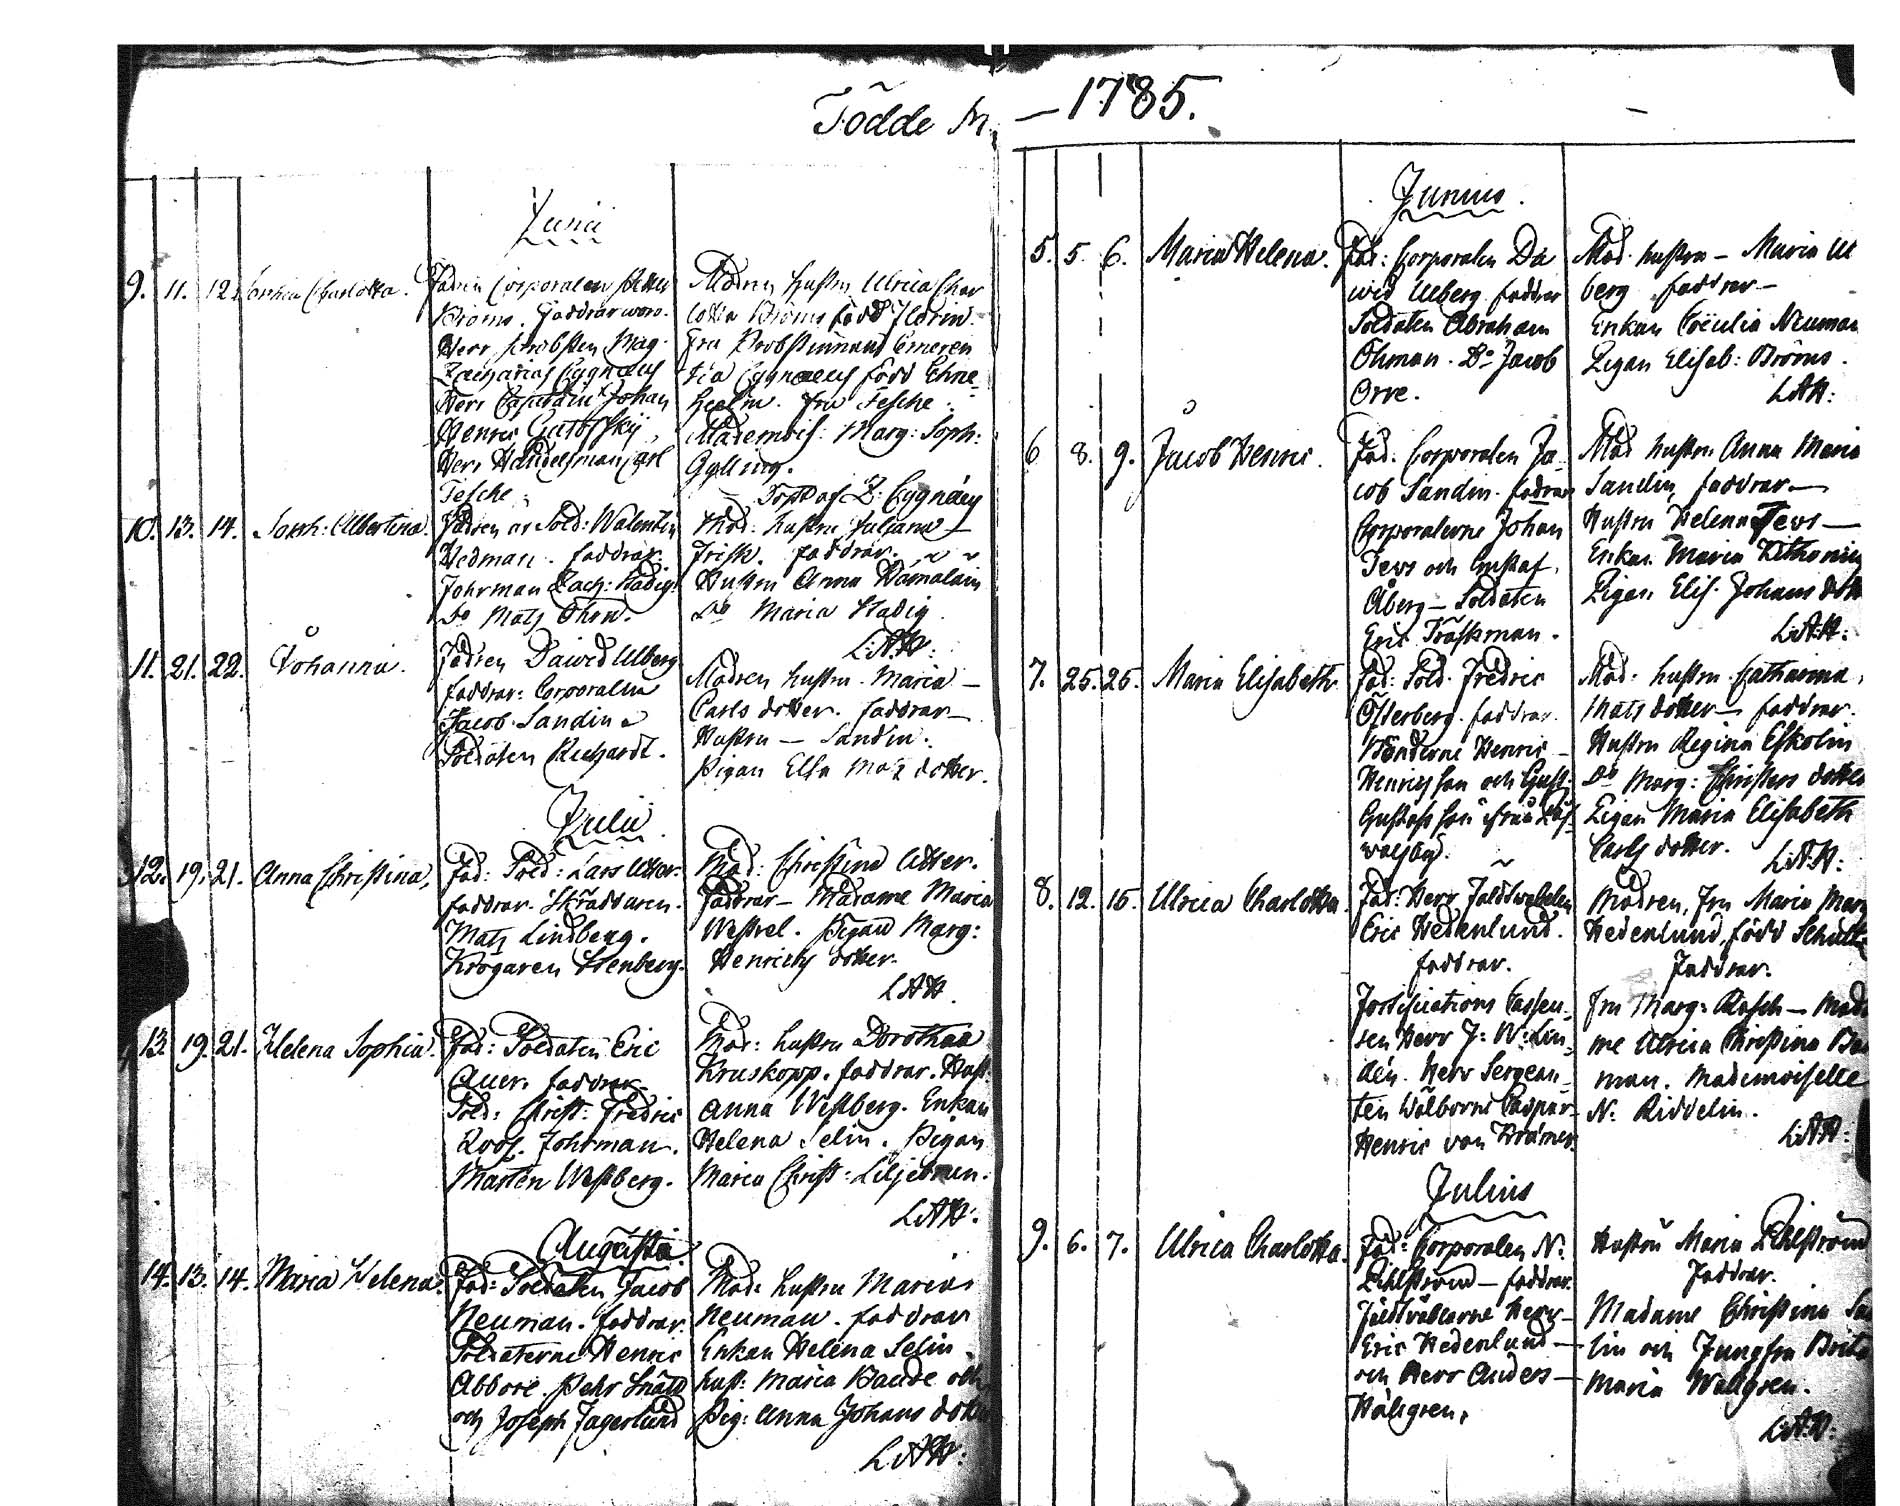 Födde År
Junii
9. 11. 12. Charlotta.
Fadren Corporalen Petter
Bröms. Faddrar woro.
Herr Probsten Mag.
Zacharias Cygnæus
Herr Capitain Johan
Henric
Herr Handelsman Carl
Tesche
Modren hustru Ulrica Char
lotta Bröms född
Fru Probstinnan Emeren
tia Cygnaeus född Ehre
Heelm. Fru Tesche
Mademois: Marg: Soph:
Gylling.
Döpt af Z: Cygnæus
10. 13. 14. Albertina.
Fadren är Sold: Walentin
Hedman. faddrar.
Fohrman Zach: Stadig.
Do Mats Öhrn.
Mod: hustru Juliana
Frisk. faddrar.
Hustru Anna Hämäläin
Do Maria Stadig
L:A:H:
11. 21. 22. Johanna.
Fadren Dawid Ulberg
faddrar: Corporalen
Jacob Sandin o
Soldaten Richardt.
Modren hustru Maria
Carls dotter. faddrar
Hustru — Sandin.
Pigan Elsa Mats dotter.
Julii
12. 19. 21. Anna Christina,
Fad: Sold: Lars Utter.
faddrar. Skräddaren.
Mats Lindberg.
Krögaren Stenberg.
Mod: Christina Utter.
Faddrar — Madame Maria
Pigan Marg:
Henrichs dotter.
L:A:H.
13. 19. 21. Helena Sophia.
Fad: Soldaten Eric
Auer. faddrar
Sold: Christ: Fredric
Roos. Fohrman.
Mårten Westberg.
Mod: hustru Dorothæa
Kruskopp. faddrar. Hust.
Anna Westberg. Enkan
Helena Selin. Pigan
Maria Christ: Liljebrun.
L:A:H:
Augusti
14. 13. 14. Maria Helena.
Fad: Soldaten Jacob
Neuman. faddrar.
Soldaterne Henric
Abbore. Pehr
och Joseph Jagerlund
Mod: hustru Maria
Neuman. faddrar
Enkan Helena Selin
hust: Maria Baude och
Pig: Anna Johans dotter
L:A:H:
— 1785.
Junius.
5. 5. 6. Maria Helena.
Fad: Corporalen Da
wid Ulberg faddrar
Soldaten Abraham
Öhman. Do Jacob
Orre.
Mod. hustru — Maria Ul
berg faddrar —
Enkan Cæcilia Neuman
Pigan Elisab: Bröms.
L:A:H:
6 8. 9. Jacob Henric.
Fad. Corporalen Ja-
cob Sandin. fadrar
Corporalerne Johan
Tews och Gustaf
Åberg — Soldaten
Eric Träskman.
Mod hustru Anna Maria
Sandin, faddrar —
Hustru Helena Tevs —
Enkan Maria
Pigan Elis. Johans dott
L:A:H:
7. 25. 25. Maria Elisabeth
Fad: Sold. Fredric
Österberg. faddrar.
Bönderne Henric
Henrichsson och Gust:
Gustafsson från
Mod: hustru Catharina
Mats dotter — faddrar.
Hustru Regina Eskolin
Do Marg: Christers dotter
Pigan Maria Elisabeth
Carls dotter.
L:A:H:
8. 12. 15. Ulrica Charlotta.
Fad: Herr Fältwebelen
Eric Hedenlund.
faddrar.
Fortifications Casseu-
ren Herr J: W: Lin-
dén. Herr Sergean-
ten Wälborne Caspar
Henric von Kræmer.
Modren, Fru Maria Marg
Hedenlund, född
Faddrar.
Fru Marg: Rasch — Mada
me Ulrica Christina
man. Mademoiselle
N: Riddelin.
L:A:H:
Julius
9. 6. 7. Ulrica Charlotta.
Fad: Corporalen N:
Zihlström — faddrar.
Fältväblarne Herr
Eric Hedenlund —
och Herr Anders —
Wälgren,
Hustru Maria Zihlström
Faddrar.
Madame Christina
lin och Jungfru Brita
Maria Wallgren.
L:A:H: